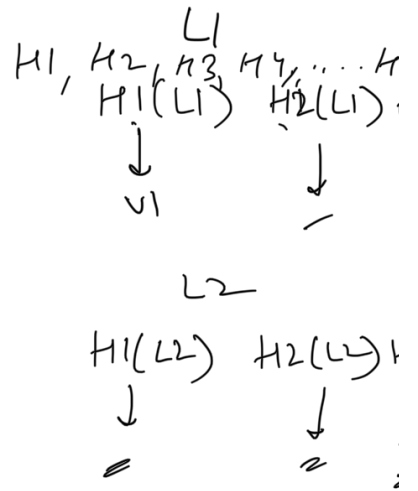 L1
H1, H2, H3, H4, ..... H
H1(L1) H2(L1)
↓ ↓
v1 –
L2
H1(L2) H2(L2) H
↓ ↓